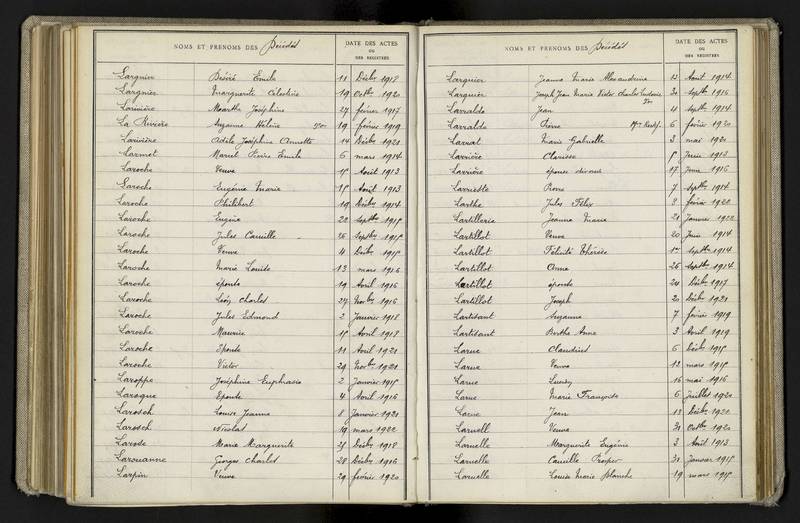 NOMS ET PRENOMS DES Décédés
DATE DES ACTES
OU
DES REGISTRES
Largnier Désiré Emile 11 Décbre 1918
Largnier Marguerite Célestine 19 Octbre 1920
Larivière Marthe Joséphine 27 février 1917
La Rivière Suzanne Hélène 19 février 1919
Larivière Adèle Joséphine Annette 14 Décbre 1921
Larmet Marcel Pierre Emile 6 mars 1914
Laroche Veuve 15 Août 1913
Laroche Eugénie Marie 15 Août 1913
Laroche Philibert 19 Décbre 1914
Laroche Eugène 22 Septbre 1915
Laroche Jules Camille 26 Septbre 1915
Laroche Veuve 4 Décbre 1915
Laroche Marie Louise 13 mars 1916
Laroche épouse 19 Avril 1916
Laroche Léon Charles 27 Novbre 1916
Laroche Jules Edmond 2 Janvier 1918
Laroche Maurice 15 Avril 1919
Laroche Epouse 11 Avril 1920
Laroche Victor 29 Novbre 1920
Laroppe Joséphine Euphrasie 2 Janvier 1915
Laroque Epouse 4 Avril 1916
Larosch Louise Jeanne 8 Janvier 1920
Larosch Nicolas 19 mars 1922
Larose Marie Marguerite 25 Décbre 1918
Larouanne Georges Charles 28 Décbre 1916
Larpin Veuve 29 février 1920
NOMS ET PRENOMS DES Décédés
DATE DES ACTES
OU
DES REGISTRES
Larquier Jeanne Marie Alexandrine 12 Août 1914
Larquier Joseph Jean Marie Victor Charles 30 Septbre 1916
Larralde Jean 4 Septbre 1914
Larralde Pierre 6 février 1920
Larrat Marie Gabrielle 3 mai 1920
Larrière Clarisse 5 Juin 1913
Larrière épouse 17 Juin 1916
Larriette Pierre 7 Septbre 1914
Larthe Jules Félix 9 février 1920
Lartillerie Jeanne Marie 21 Janvier 1922
Lartillot Veuve 20 Juin 1914
Lartillot Félicité Thérèse 1er Septbre 1914
Lartillot Anne 26 Septbre 1914
Lartillot épouse 24 Décbre 1917
Lartillot Joseph 20 Décbre 1920
Lartisant Suzanne 7 février 1919
Lartisant Berthe Anne 3 Avril 1919
Larue Claudius 6 Décbre 1915
Larue Veuve 12 mars 1915
Larue Lucien 16 mai 1916
Larue Marie Françoise 6 Juillet 1920
Larue Jean 13 Décbre 1920
Laruell Veuve 31 Octbre 1920
Laruelle Marguerite Eugénie 3 Août 1913
Laruelle Camille Prosper 31 Janvier 1915
Laruelle Louise Marie Blanche 19 mars 1915